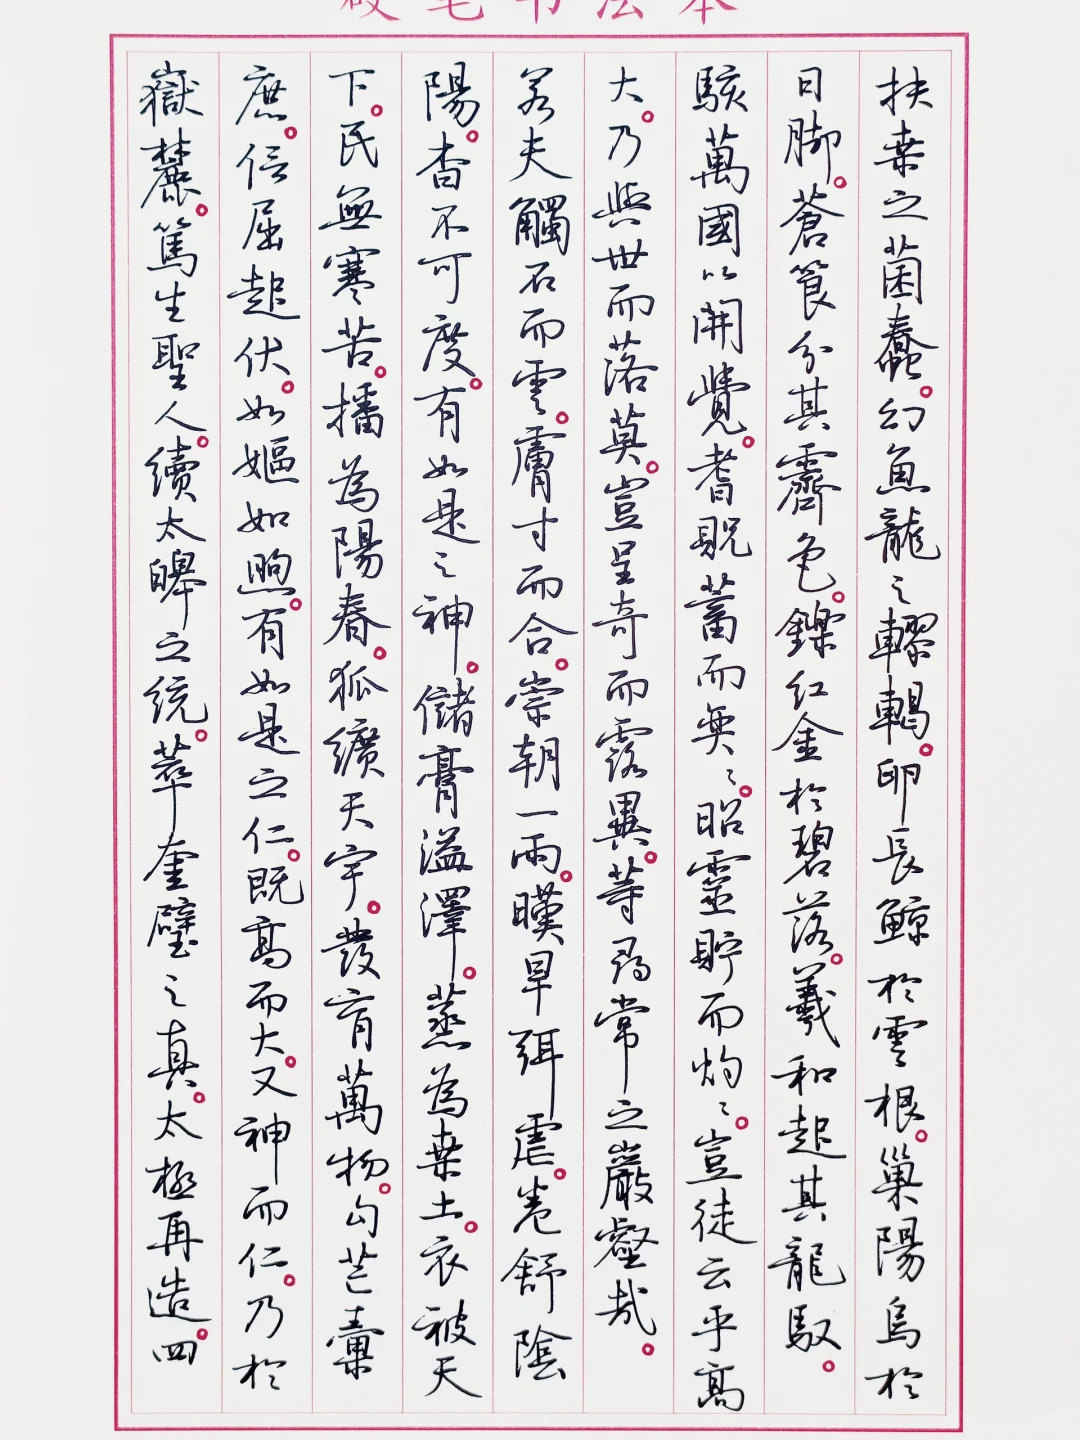 硬笔书法本
扶桑之菌蠢。幻魚龍之轇輵。卵長鯨於雲根。巢陽烏於
日脚。蒼筤分其霽色。鑠紅金於碧落。羲和起其龍馭。
駭萬國以開覺。耆
蓄而奐〻。昭靈貯而灼〻。豈徒云乎高
大。乃與世而落莫。豈呈奇而露異。等尋常之巖壑哉。
若夫觸石而雲。膚寸而合。崇朝一雨。暵旱弭虐。卷舒陰
陽。杳不可度。有如是之神。儲膏溢澤。蒸為桑土。衣被天
下。民無寒苦。播為陽春。狐纊天宇。發育萬物。勾芒橐
庶。信屈起伏。如嫗如煦。有如是之仁。既高而大。又神而仁。乃於
嶽麓。篤生聖人。續太皞之統。萃奎璧之真。太極再造。四